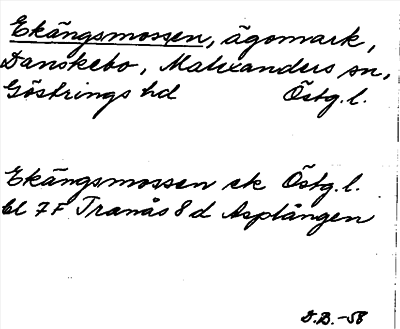 Ekängsmossen, ägomark,
Danskebo, Malexanders sn,
Göstrings hd Östg. l.
Ekängsmossen ek Östg. l.
bl 7F Tranås 8d Asplången
D.B.-58